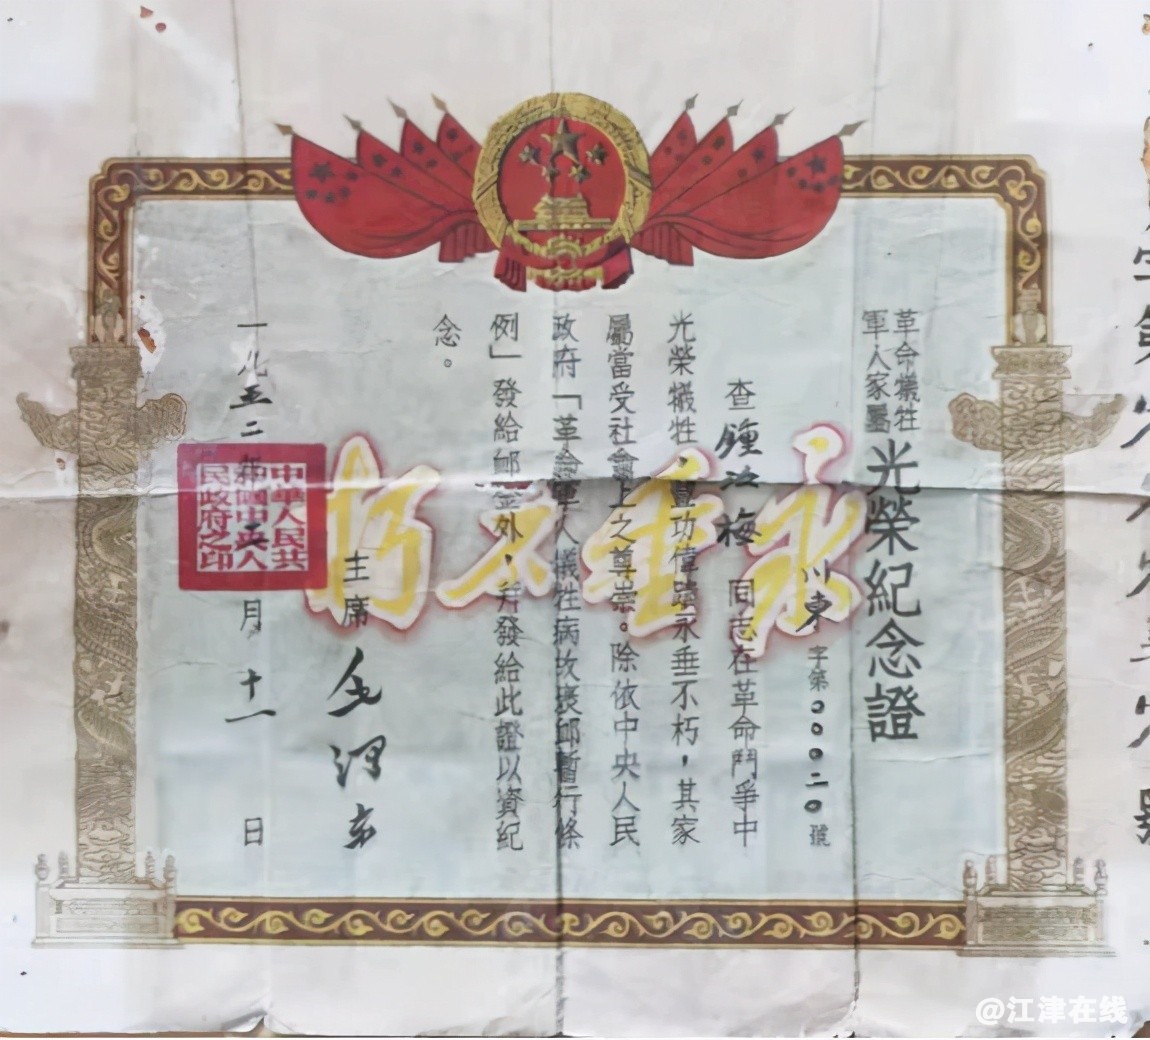 革命犧牲
軍人家屬
光榮紀念證
川東字第000二0號
查鍾汝梅同志在革命鬥爭中
光榮犧牲，豐功偉蹟永垂不朽，其家
屬當受社會上之尊崇。除依中央人民
政府「革命軍人犧牲病故褒卹暫行條
例」發給卹金外，并發給此證以資紀
念。
主席 毛澤東
一九五二年 月十一日
永垂不朽
中華人民共
和國中央人
民政府之印
@江津在线